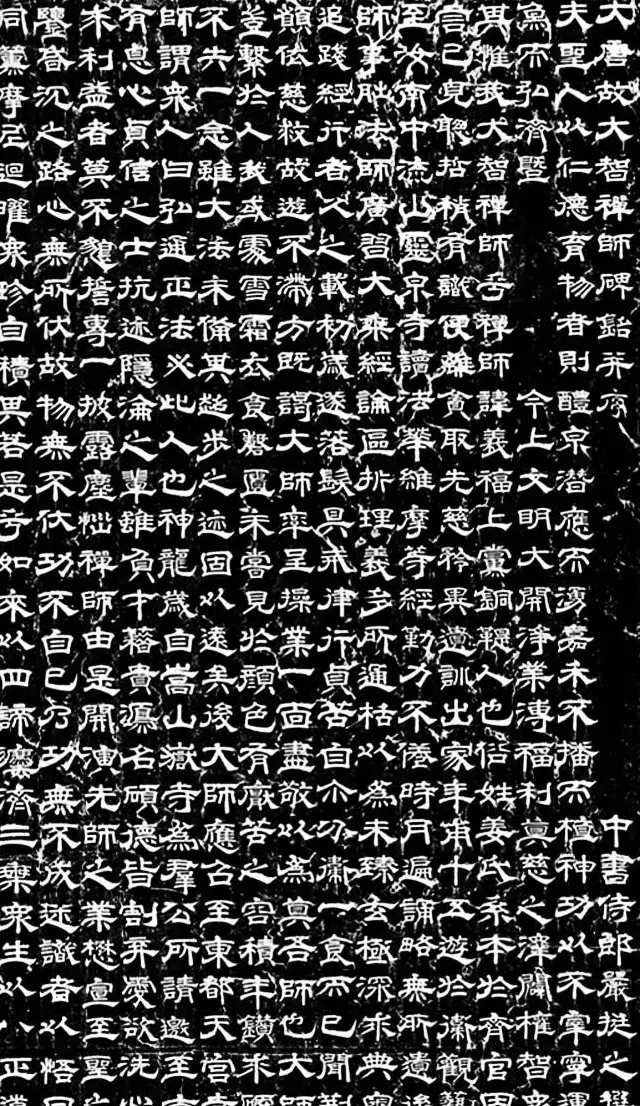 大唐故大智禪師碑銘并序　中書侍郎嚴挺之撰
夫聖人以仁德育物者則醴泉潛應而湧嘉禾不播而植神功以不宰寧運
為而弘濟暨　今上文明大開淨業溥福利真慈之澤闡權智衆
其惟我大智禪師乎禪師諱義福上黨銅鞮人也俗姓姜氏系本於齊官因
言已皃聰哲稍有識便離貪取先慈矜異遺訓出家年甫十五遊於衛觀藝
至汝南中流山靈泉寺讀法華維摩等經勤力不倦時月遍誦略無所遺後
師事朏法師廣習大乘經論區折理義多所通括以為未臻玄極深求典奧
追踐經行者久之載初歲遂落髮具戒律行貞苦自尒分衛一食而已聞荆
願依慈救故遊不滯方既謁大師率呈操業一面盡敬以為真吾師也大師
豈繫於人我或處雪霜衣食罄匱未嘗見於顏色有厭苦之容積年鑽求
不失一念雖大法未備其超步之迹固以遠矣後大師應召至東都天宮寺
師謂衆人曰弘通正法必此人也神龍歲自嵩山嶽寺為羣公所請邀至京
有息心貞信之士抗迹隱淪之輩雖負才籍貴鴻名碩德皆割弃愛欲洗心
未利益者莫不誓專一披露塵惱禪師由是開演先師之業懋宣至聖之
鑒昏沉之路心無所伏故物無不伏功不自已乃功無不成迷識者以悟日
同薰摩尼迴曜衆珍自積異若是乎如來以四諦灋濟三乘衆生以八正道